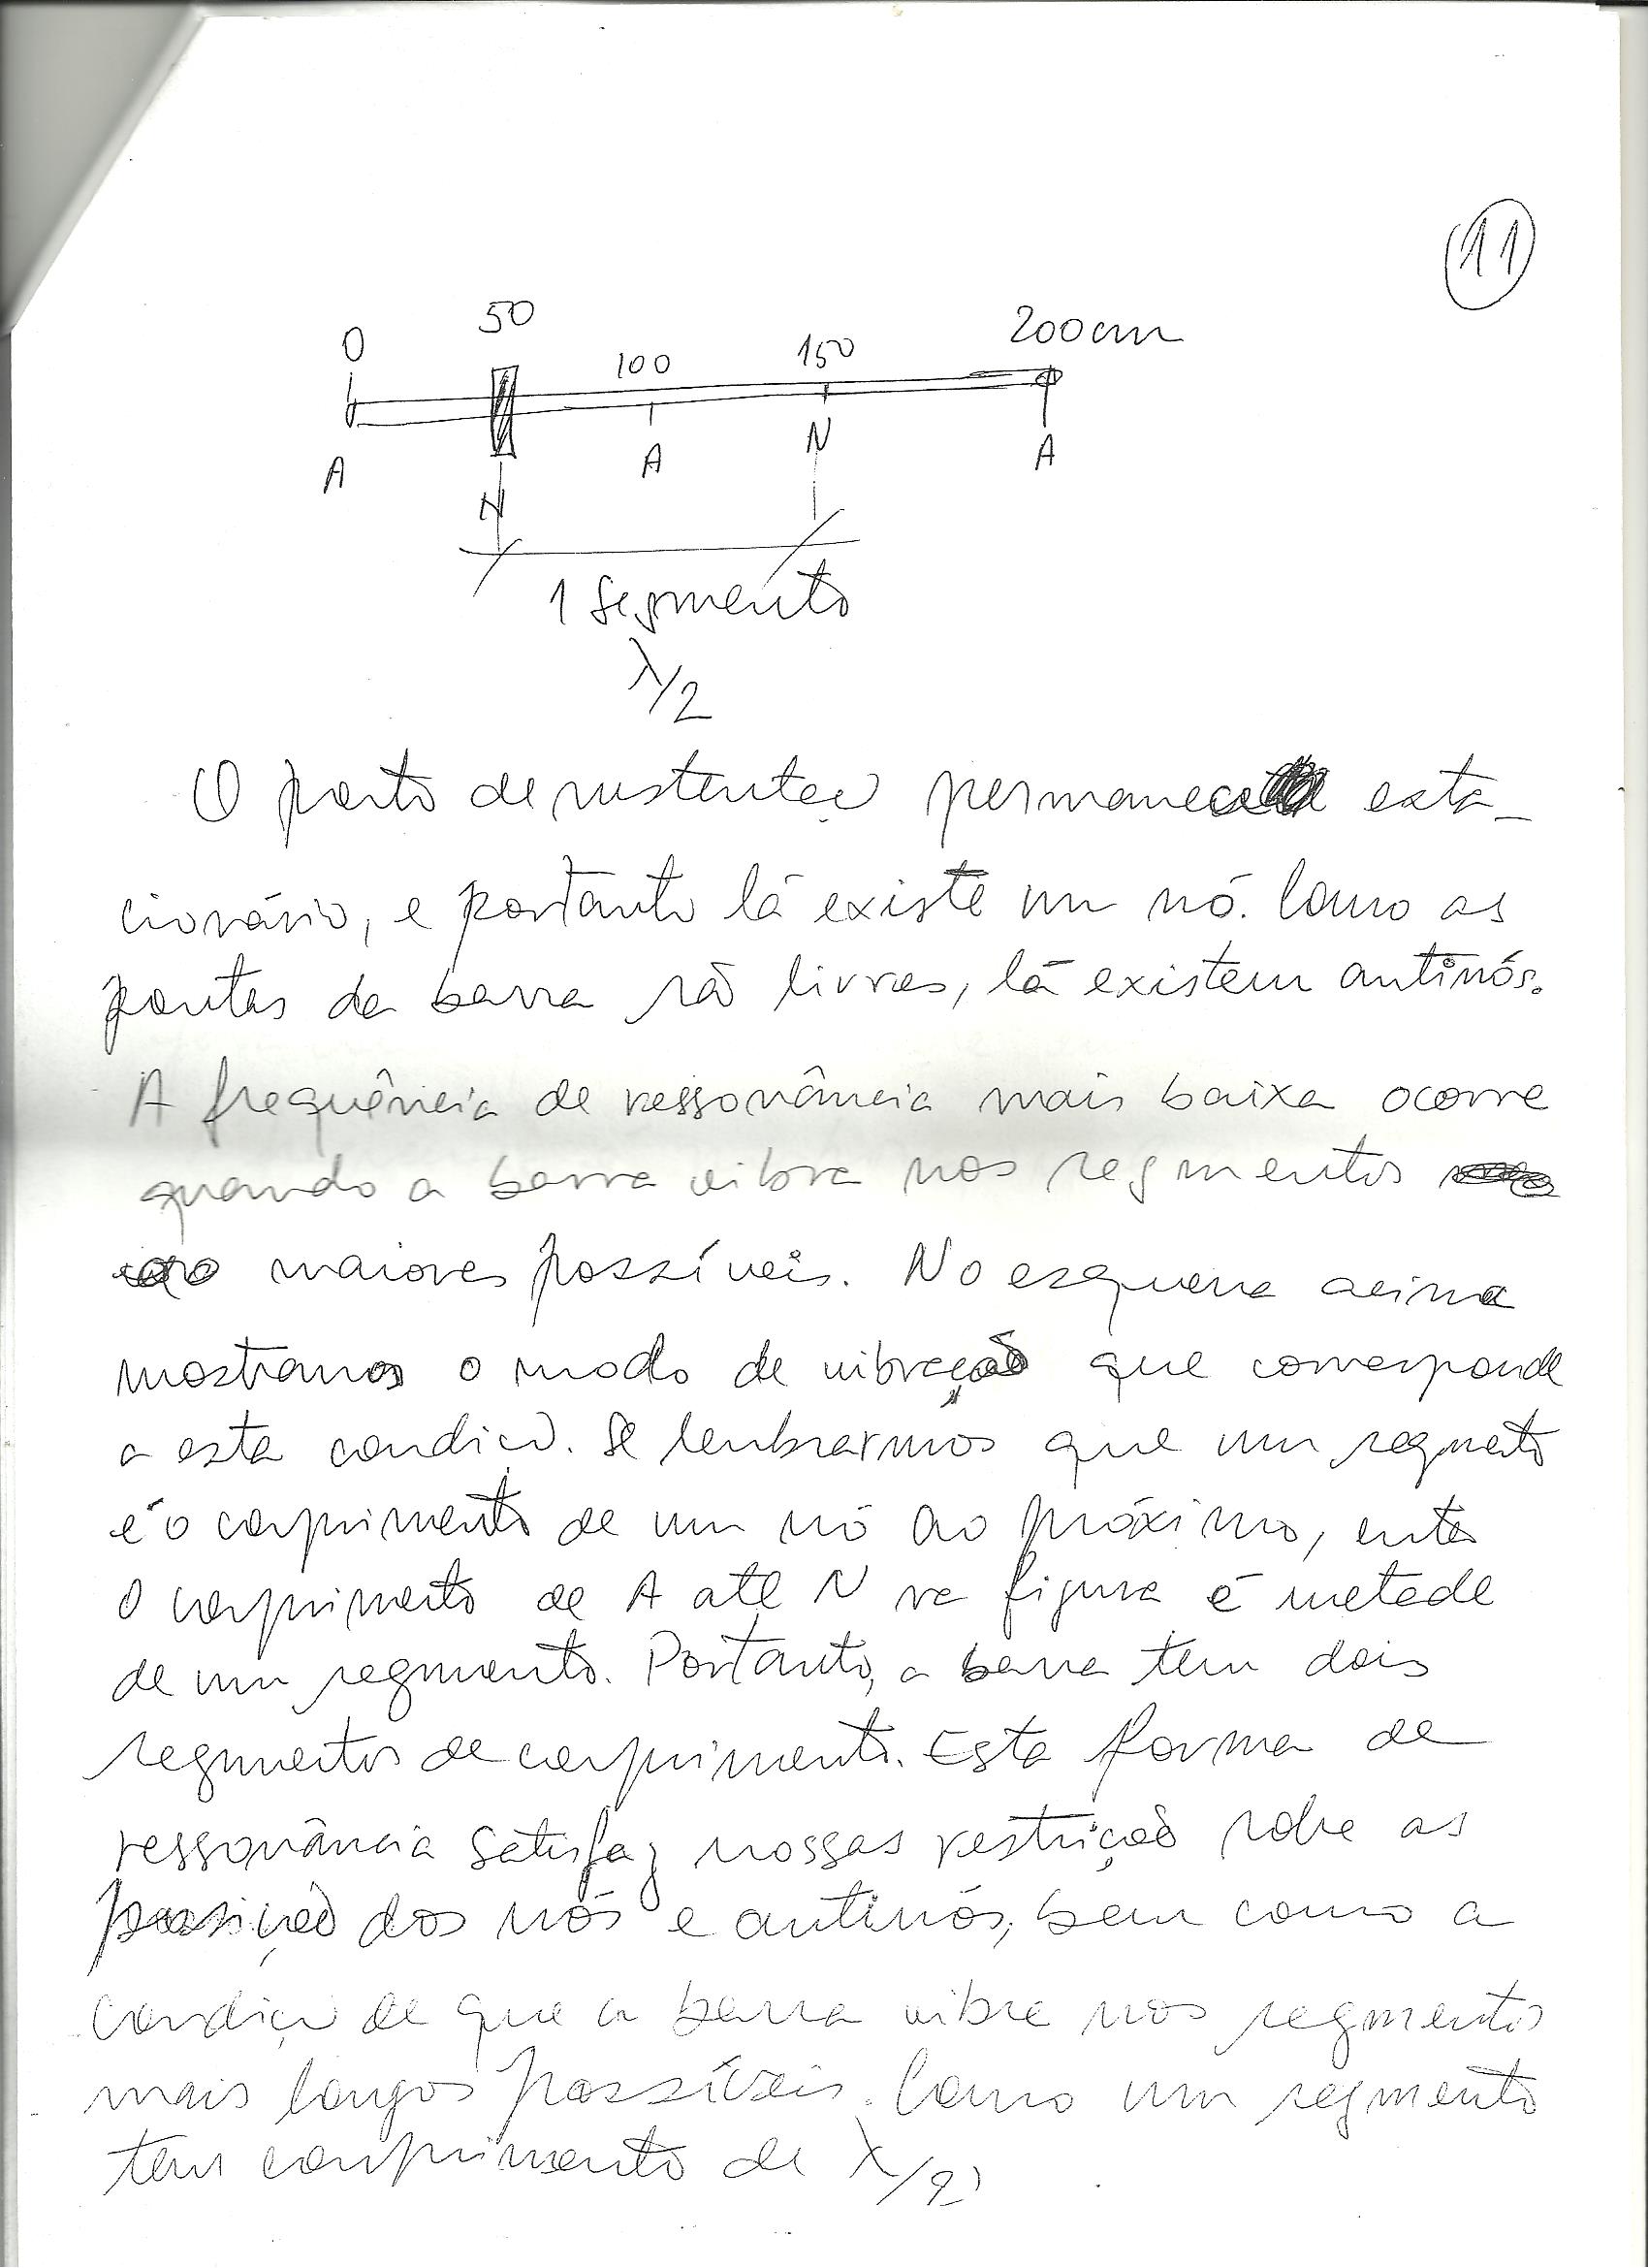 11
0 50 100 150 200cm
A N A N A
1 segmento
λ/2
O ponto de sustentação permanece esta-
cionário, e portanto lá existe um nó. Como as
pontas da barra são livres, lá existem antinós.
A frequência de ressonância mais baixa ocorre
quando a barra vibra nos segmentos
maiores possíveis. No esquema acima
mostramos o modo de vibração que corresponde
a esta condição. Se lembrarmos que um segmento
é o comprimento de um nó ao próximo, então
o comprimento de A até N na figura é metade
de um segmento. Portanto, a barra tem dois
segmentos de comprimento. Esta forma de
ressonância satisfaz nossas restrição sobre as
posição dos nós e antinós, bem como a
condição de que a barra vibre nos segmentos
mais longos possíveis. Como um segmento
tem comprimento de λ/2,